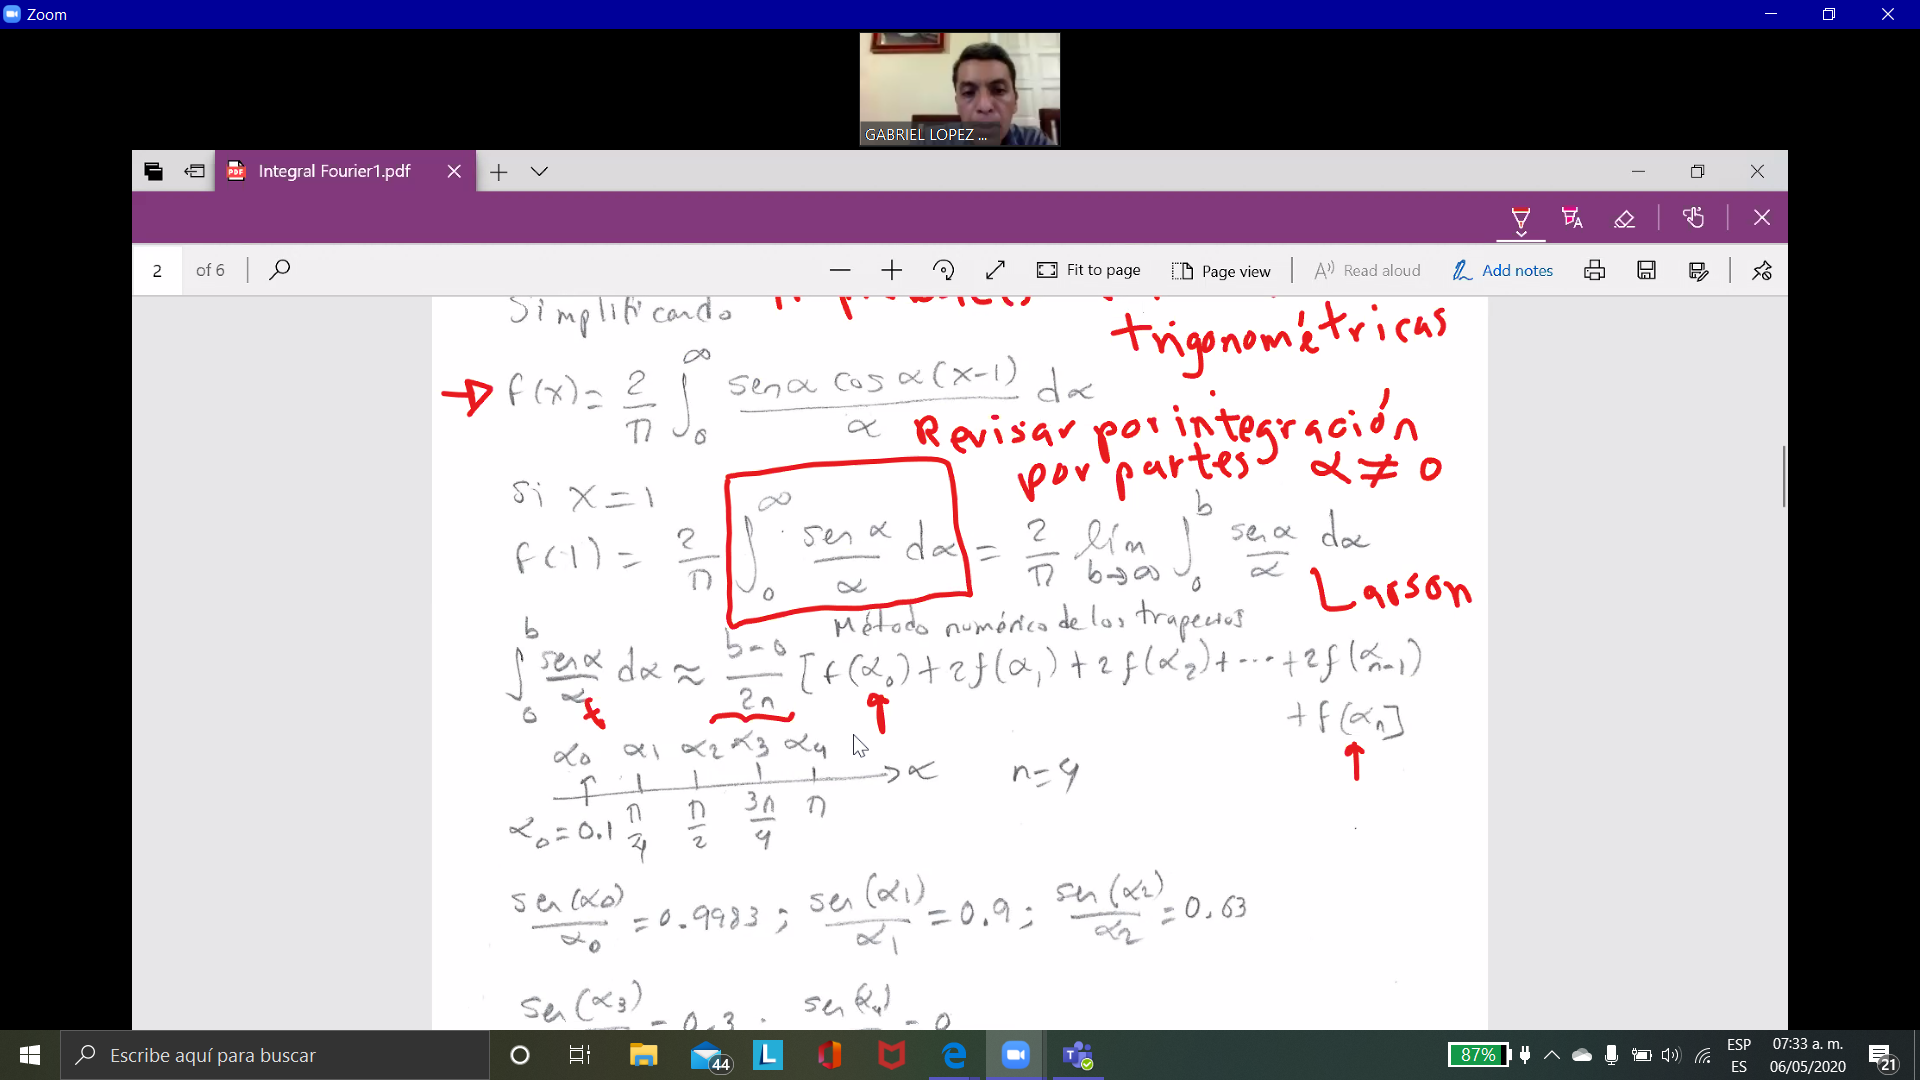 Zoom
GABRIEL LOPEZ ...
Integral Fourier1.pdf
2 of 6
Fit to page
Page view
Read aloud
Add notes
Simplificando
trigonométricas
→ f(x) = 2/π ∫₀^∞ (sen α cos α(x-1))/α dα
Revisar por integración
por partes α ≠ 0
Si x = 1
f(1) = 2/π ∫₀^∞ (sen α)/α dα = 2/π lím b→∞ ∫₀^b (sen α)/α dα
Larson
Método numérico de los trapecios
∫₀^b (sen α)/α dα ≈ (b-0)/2n [f(α₀) + 2f(α₁) + 2f(α₂) + ... + 2f(αₙ₋₁)
+ f(αₙ]
α₀ α₁ α₂ α₃ α₄
→ α n = 4
α₀ = 0.1 π/4 π/2 3π/4 π
sen(α₀)/α₀ = 0.9983 ; sen(α₁)/α₁ = 0.9 ; sen(α₂)/α₂ = 0.63
sen(α₃) = 0.3 . sen(α₄) = 0
Escribe aquí para buscar
44
87%
ESP
ES
07:33 a. m.
06/05/2020
21